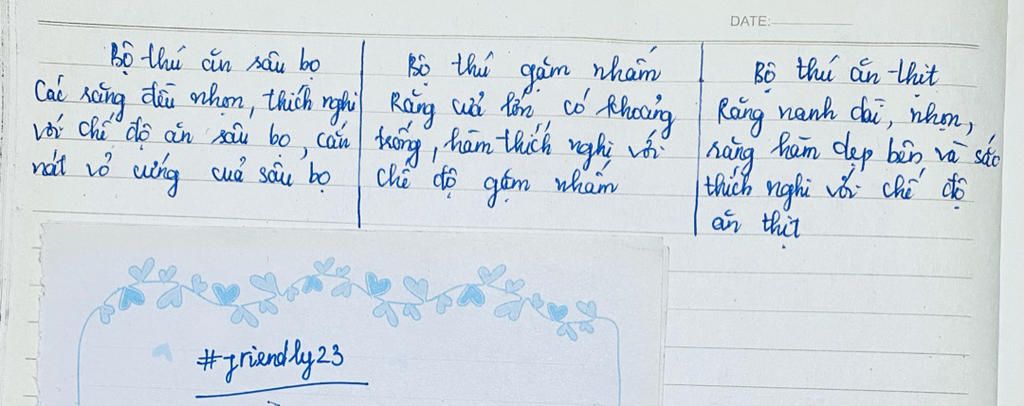 DATE:
Bộ thú ăn sâu bọ
Các răng đều nhọn, thích nghi
với chế độ ăn sâu bọ, cắn
nát vỏ cứng cuả sâu bọ
Bộ thú gặm nhấm
Răng cửa lớn có khoảng
trống, hàm thích nghi với
chế độ gặm nhấm
Bộ thú ăn thịt
Răng nanh dài, nhọn,
răng hàm dẹp bên và sắc
thích nghi với chế độ
ăn thịt
#friendly23